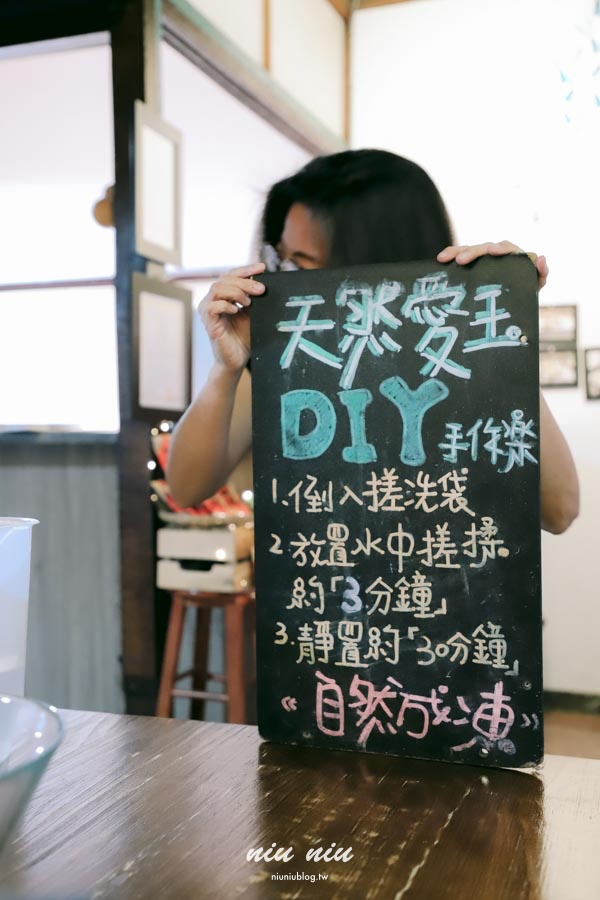 天然愛玉。
DIY 手作樂
1.倒入搓洗袋
2.放置水中搓揉
約「3分鐘」
3.靜置約「30分鐘」
《自然成凍》
niu niu
niuniublog.tw